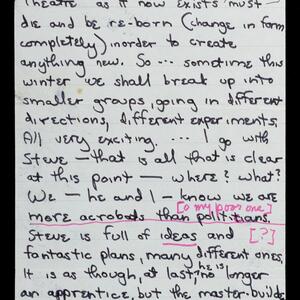 Theatre as it now exists must —
die and be re-born (change in form
completely) inorder to create
anything new. So... sometime this
winter we shall break up into
smaller groups, going in different
directions, different experiments,
All very exciting. ... I go with
Steve — that is all that is clear
at this point — where? what?
We — he and I — know we are
[o my poor one]
more acrobats than politians.
Steve is full of ideas and [?]
fantastic plans, many different ones,
It is as though, at last, he is no longer
an apprentice, but the master-builder